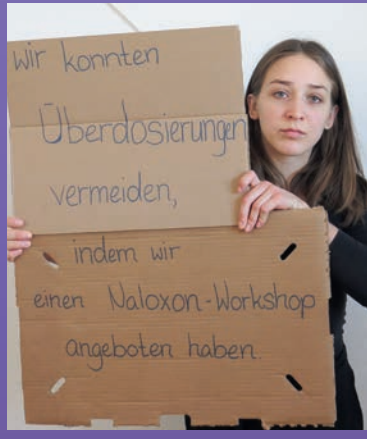 Wir konnten
Überdosierungen
vermeiden,
indem wir
einen Naloxon-Workshop
angeboten haben.